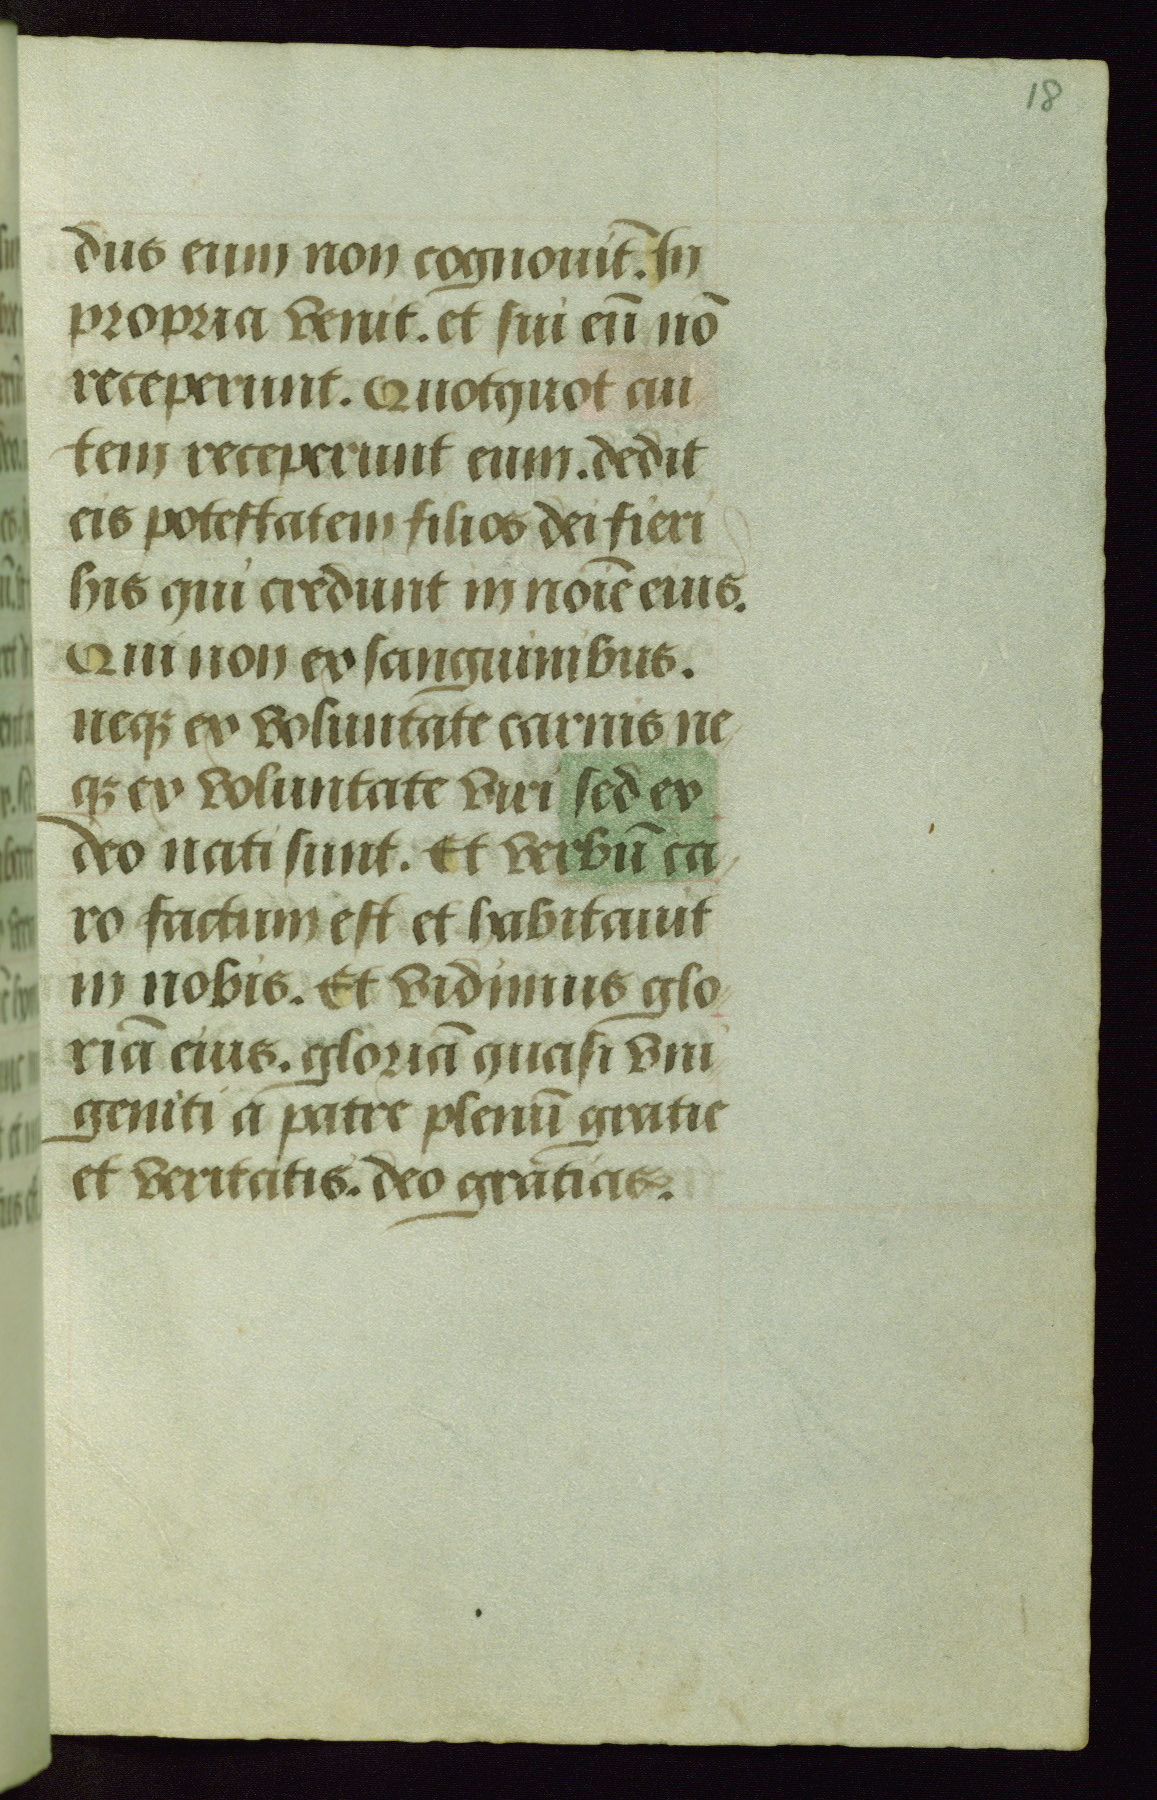 18
dus eum non cognouit. In
propria venit. et sui eū nō
receperunt. Quotquot au
tem receperunt eum. dedit
eis potestatem filios dei fieri
his qui credunt in noīe eius.
Qui non ex sanguinibus.
neqꝫ ex voluntate carnis ne
qꝫ ex voluntate viri sed ex
deo nati sunt. Et verbū ca
ro factum est et habitauit
in nobis. Et vidimus glo
riā eius. gloriā quasi vni
geniti a patre plenū gratie
et veritatis. deo gratias.